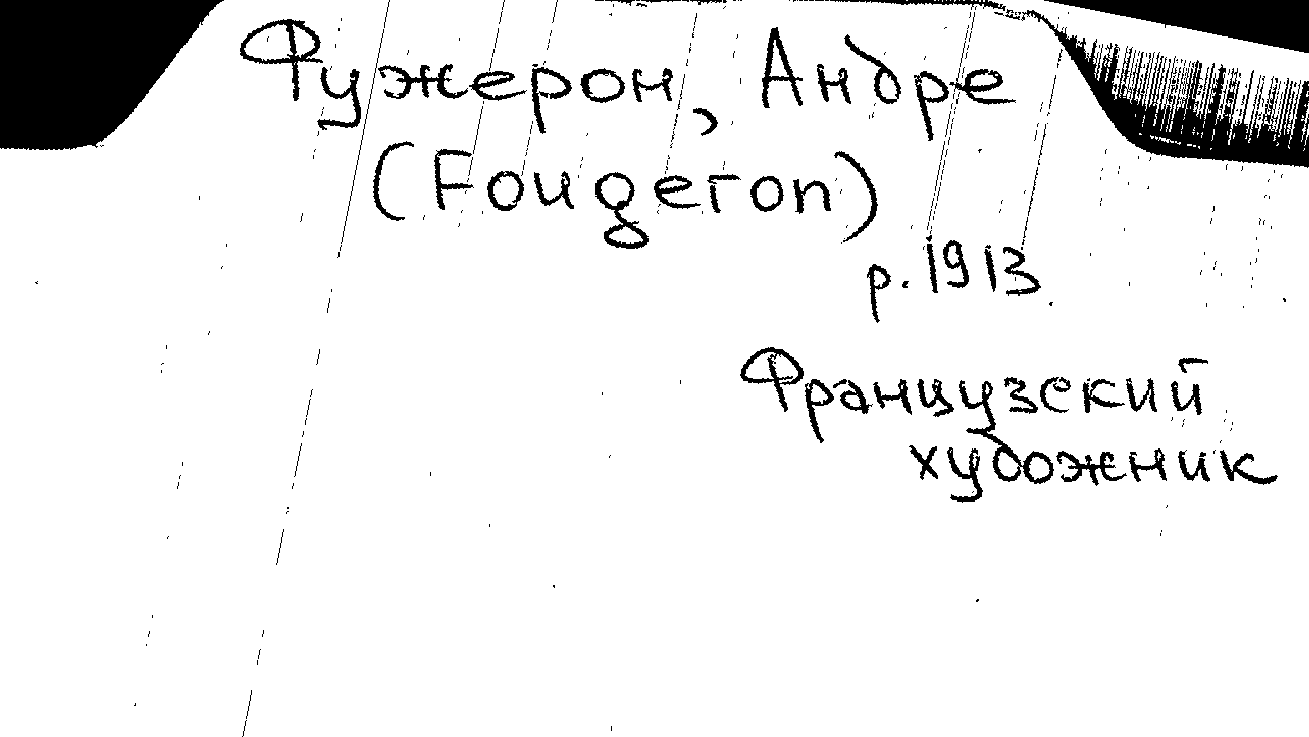 Фужерон, Андре
(Fougeron)
р. 1913
Французский
художник